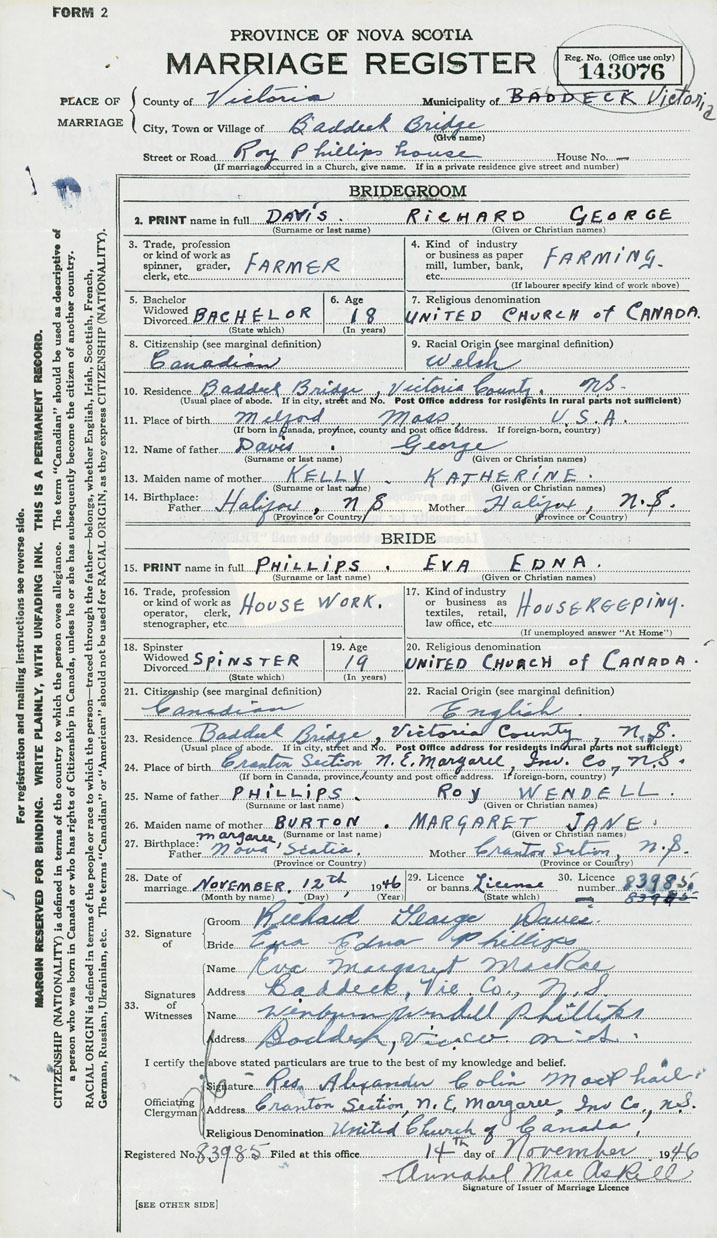 FORM 2
PROVINCE OF NOVA SCOTIA
MARRIAGE REGISTER
Reg. No. (Office use only)
143076
PLACE OF MARRIAGE
County of Victoria Municipality of BADDECK Victoria
City, Town or Village of Baddeck Bridge
(Give name)
Street or Road Roy Phillips house House No. —
(If marriage occurred in a Church, give name. If in a private residence give street and number)
BRIDEGROOM
2. PRINT name in full DAVIS. RICHARD GEORGE
(Surname or last name) (Given or Christian names)
3. Trade, profession or kind of work as spinner, grader, clerk, etc. FARMER
4. Kind of industry or business as paper mill, lumber, bank, etc. FARMING.
(If labourer specify kind of work above)
5. Bachelor Widowed Divorced BACHELOR (State which)
6. Age 18 (In years)
7. Religious denomination
UNITED CHURCH of CANADA.
8. Citizenship (see marginal definition) Canadian
9. Racial Origin (see marginal definition) Welsh
10. Residence Baddeck Bridge, Victoria County. N.S.
(Usual place of abode. If in city, street and No. Post Office address for residents in rural parts not sufficient)
11. Place of birth Milford Mass, U.S.A.
(If born in Canada, province, county and post office address. If foreign-born, country)
12. Name of father Davis. George
(Surname or last name) (Given or Christian names)
13. Maiden name of mother KELLY. KATHERINE.
(Surname or last name) (Given or Christian names)
14. Birthplace: Father Halifax, N.S. Mother Halifax, N.S.
(Province or Country) (Province or Country)
BRIDE
15. PRINT name in full PHILLIPS. EVA EDNA.
(Surname or last name) (Given or Christian names)
16. Trade, profession or kind of work as operator, clerk, stenographer, etc. HOUSE WORK.
17. Kind of industry or business as textiles, retail, law office, etc. HOUSEKEEPING.
(If unemployed answer "At Home")
18. Spinster Widowed Divorced SPINSTER (State which)
19. Age 19 (In years)
20. Religious denomination
UNITED CHURCH of CANADA.
21. Citizenship (see marginal definition) Canadian
22. Racial Origin (see marginal definition) English
23. Residence Baddeck Bridge, Victoria County, N.S.
(Usual place of abode. If in city, street and No. Post Office address for residents in rural parts not sufficient)
24. Place of birth Cranton Section N.E. Margaree, Inv. Co, N.S.
(If born in Canada, province, county and post office address. If foreign-born, country)
25. Name of father PHILLIPS. ROY WENDELL.
(Surname or last name) (Given or Christian names)
26. Maiden name of mother BURTON. MARGARET JANE.
(Surname or last name) (Given or Christian names)
27. Birthplace: Father Margaree Nova Scotia. Mother Cranton Section, N.S.
(Province or Country) (Province or Country)
28. Date of marriage NOVEMBER. 12th, 1946
(Month by name) (Day) (Year)
29. Licence or banns License (State which)
30. Licence number 83985.
83985
32. Signature of
Groom Richard George Davis.
Bride Eva Edna Phillips
33. Signatures of Witnesses
Name Eva Margaret MacRae
Address Baddeck, Vic Co., N.S.
Name Wendell Phillips
Address Baddeck, Vic Co N.S.
I certify the above stated particulars are true to the best of my knowledge and belief.
Officiating Clergyman
Signature Rev. Alexander Colin MacPhail.
Address Cranton Section, N.E. Margaree, Inv Co., N.S.
Religious Denomination United Church of Canada,
Registered No. 83985 Filed at this office 14th day of November 1946
Annabel MacAskill
Signature of Issuer of Marriage Licence
[SEE OTHER SIDE]
For registration and mailing instructions see reverse side.
MARGIN RESERVED FOR BINDING. WRITE PLAINLY, WITH UNFADING INK. THIS IS A PERMANENT RECORD.
CITIZENSHIP (NATIONALITY) is defined in terms of the country to which the person owes allegiance. The term "Canadian" should be used as descriptive of
a person who was born in Canada or who has rights of Citizenship in Canada, unless he or she has subsequently become the citizen of another country.
RACIAL ORIGIN is defined in terms of the people or race to which the person—traced through the father—belongs, whether English, Irish, Scottish, French,
German, Russian, Ukrainian, etc. The terms "Canadian" or "American" should not be used for RACIAL ORIGIN, as they express CITIZENSHIP (NATIONALITY).